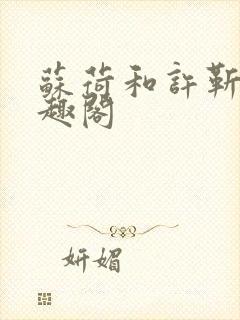 蘇荷和許靳
趣閣
妍媚